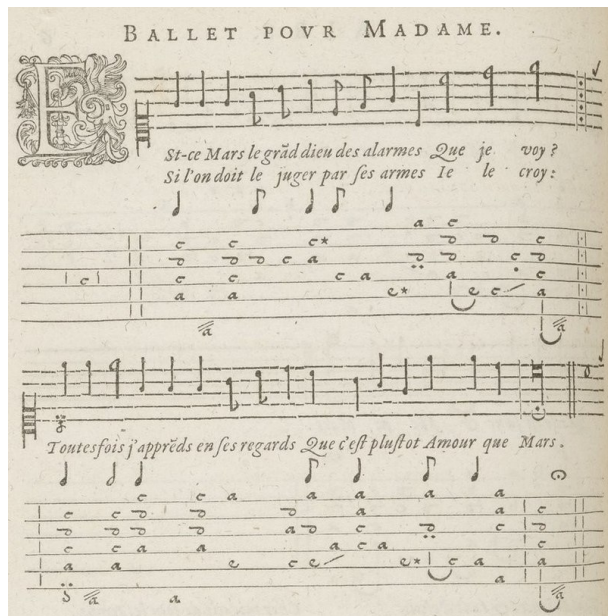 BALLET POVR MADAME.
ESt-ce Mars le grãd dieu des alarmes Que je voy?
Si l'on doit le juger par ſes armes Ie le croy:
Toutesfois j'apprẽds en ſes regards Que c'eſt pluſtot Amour que Mars.